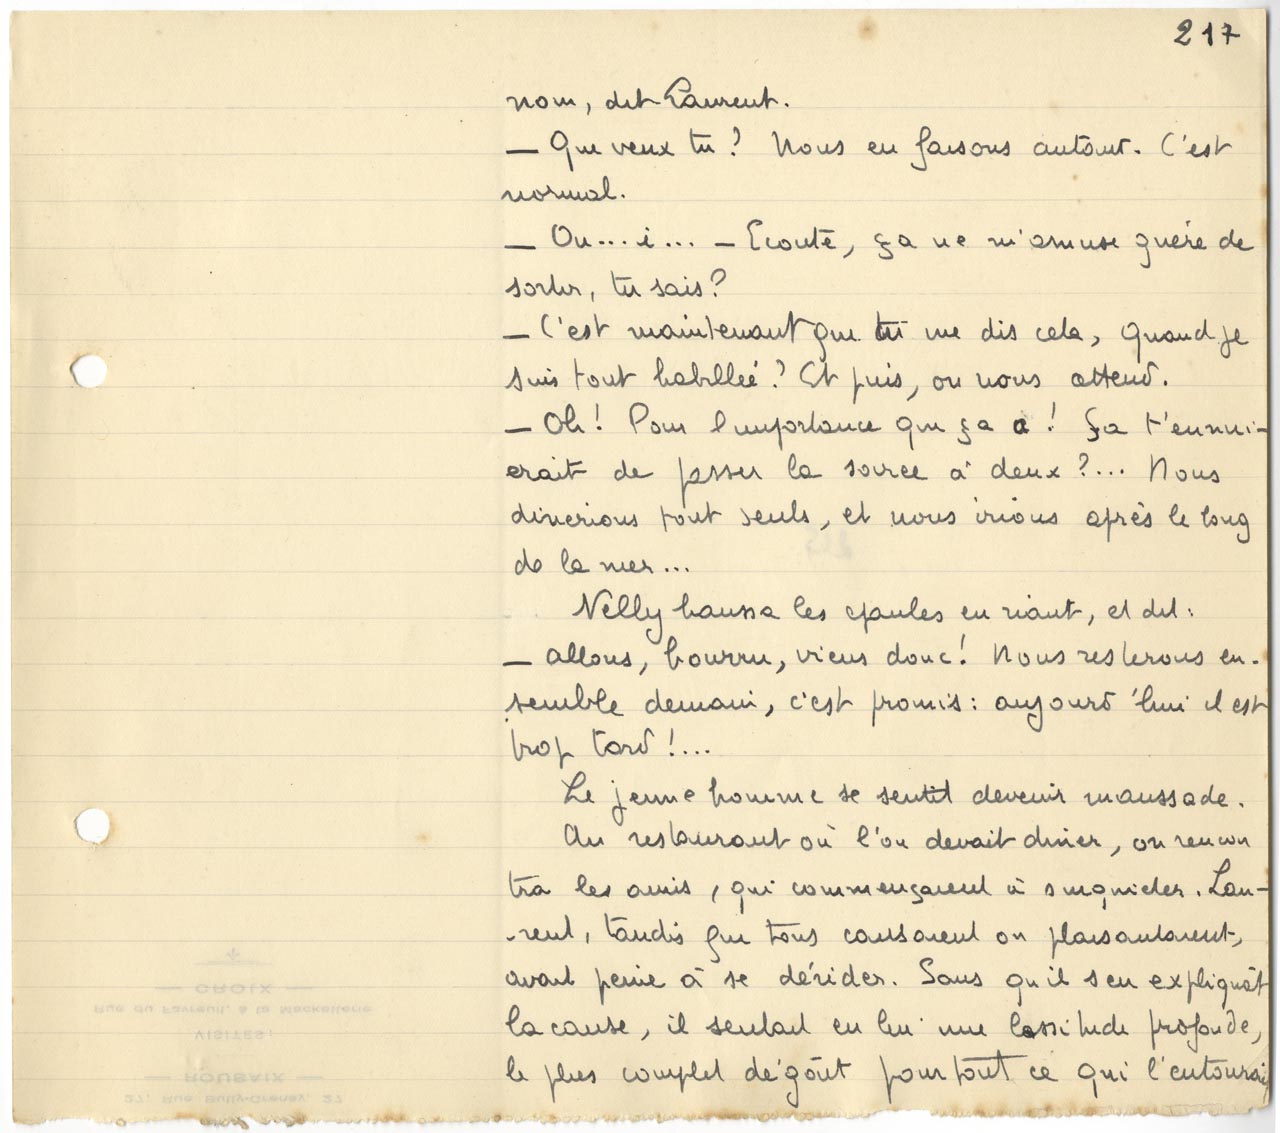 217
nom, dit Laurent.
— Que veux tu ? Nous en faisons autant. C'est
normal.
— Ou... i... — Ecoute, ça ne m'amuse guère de
sortir, tu sais ?
— C'est maintenant que tu me dis cela, quand je
suis tout habillée ? Et puis, on nous attend.
— Oh ! Pour l'importance que ça a ! Ça t'ennui-
erait de passer la soirée à deux ?... Nous
dinerions tout seuls, et nous irions après le long
de la mer...
Nelly haussa les épaules en riant, et dit :
— Allons, bourru, viens donc ! Nous resterons en-
semble demain, c'est promis : aujourd'hui il est
trop tard !...
Le jeune homme se sentit devenir maussade.
Au restaurant où l'on devait diner, on rencon
tra les amis, qui commençaient à s'inquiéter. Lau-
-rent, tandis que tous causaient ou plaisantaient,
avait peine à se dérider. Sans qu'il s'en expliquât
la cause, il sentait en lui une lassitude profonde,
le plus complet dégoût pour tout ce qui l'entourai
27, Rue Bully-Grenay, 27
— ROUBAIX —
VISITES :
Rue du Favreuil, à la Mackellerie
— CROIX —